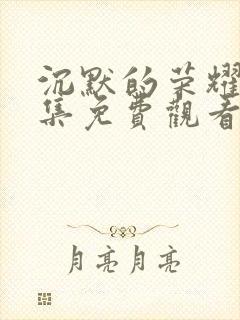 沉默的荣耀
集免費觀看
月亮月亮